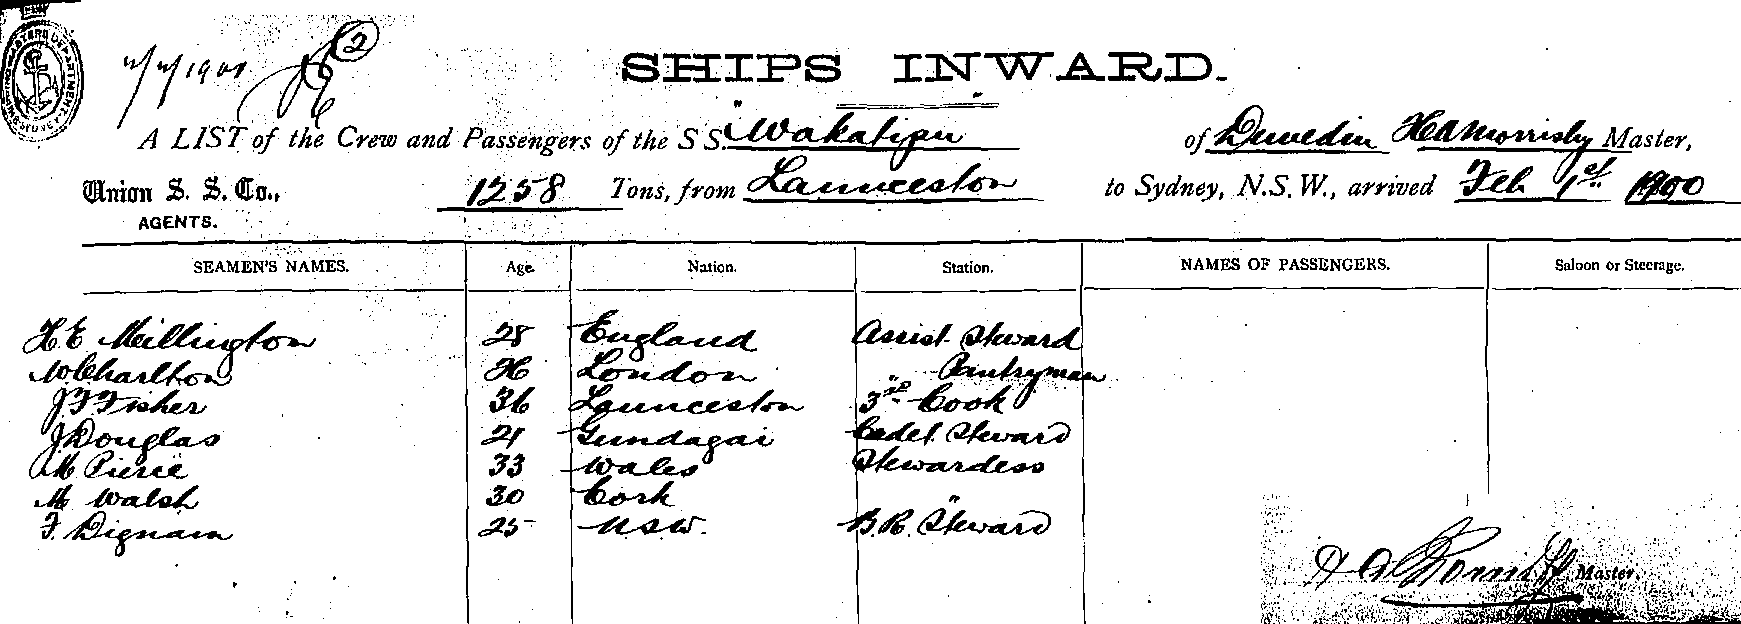 2
SHIPS INWARD.
A LIST of the Crew and Passengers of the S S. "Wakatipu" of Dunedin H A Morrisby Master,
Union S. S. Co., 1258 Tons, from Launceston to Sydney, N.S.W., arrived Feb 1st 1900
AGENTS.
SEAMEN'S NAMES. Age. Nation. Station. NAMES OF PASSENGERS. Saloon or Steerage.
H E Millington 28 England Assist. Steward
W Charlton London " Pantryman
J F Fisher 36 Launceston 3rd Cook
J Douglas 21 Gundagai Cadet Steward
M Pierce 33 Wales Stewardess
M Walsh 30 Cork "
F. Dignam 25 N S W. B.R. Steward
Master.